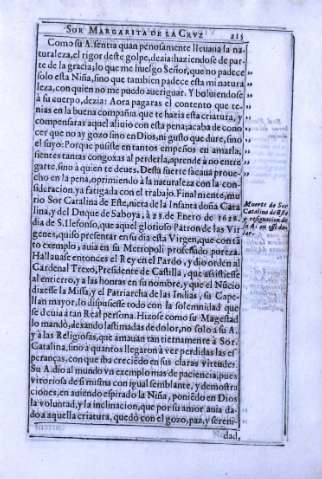 SOR MARGARITA DE LA CRVZ 215
Como su A. sentia quan penosamente lleuaua la na-
turaleza, el rigor deste golpe, dezia: haziendose de par-
te de la gracia; lo que me huelgo Señor, que no padece
solo esta Niña, sino que tambien padece esta mi natura
leza, con quien no me puedo aueriguar. Y boluiendose
à su cuerpo, dezia: Aora pagaras el contento que te-
nias en la buena compañia, que te hazia esta criatura, y
compensaràs aquel aliuio con esta pena; acaba de cono
cer que no ay gozo sino en Dios, ni gusto que dure, sino
el suyo: Porque pusiste en tantos empeños en amarla,
sientes tantas congoxas al perderla, aprende à no entre
garte, sino à quien te deues. Desta suerte sacaua proue-
cho en la pena, oprimiendo à la naturaleza con la con-
sideracion, ya fatigada con el trabajo. Finalmente, mu
rio Sor Catalina de Este, nieta de la Infanta doña Cata
lina, y del Duque de Saboya, à 23. de Enero de 1628.
Muerte de Sor
Catalina de Este
y resignacion de
la A. en
dia de S. Ilefonso, que aquel glorioso Patron de las Vir
genes, quiso presentar en su dia esta Virgen, que con tã
to exemplo, auia en su Metropoli professado pureza.
Hallauase entonces el Rey en el Pardo, y dio orden al
Cardenal Trexo, Presidente de Castilla, que assistiesse
al entierro, y a las honras en su nombre, y que el Nũcio
dixesse la Missa, y el Patriarcha de las Indias, su Cape-
llan mayor, lo dispusiesse todo con la solemnidad que
se deuia à tan Real persona. Hizose como su Magestad
lo mandò, dexando lastimadas de dolor, no solo à su A.
y à las Religiosas, que amauan tan tiernamente à Sor.
Catalina, sino à quantos llegaron à ver perdidas las es-
peranças, con que iba creciẽdo en sus claras virtudes.
Su A. dio al mundo vn exemplo mas de paciencia, pues
vitoriosa de si misma con igual semblante, y demostra
ciones, en auiendo espirado la Niña, poniẽdo en Dios
la voluntad, y la inclinacion, que por su amor auia da-
do a aquella criatura, quedò con el gozo, paz, y sereni-
dad,